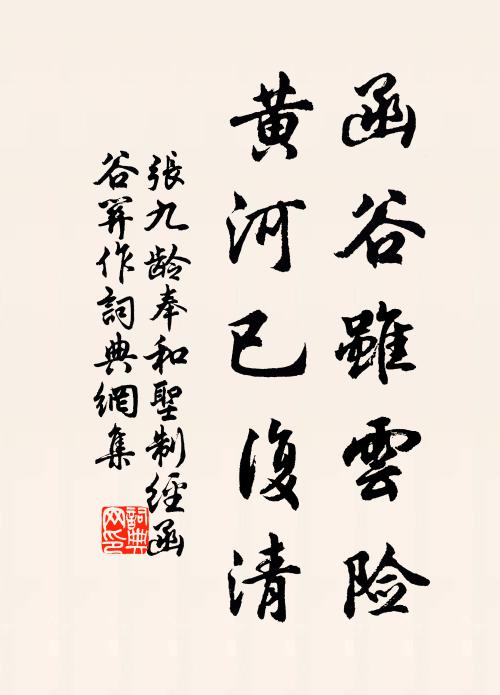 函谷雖雲险
黄河已復清
張九龄奉和聖制經函
谷関作詞典網集
詞典网印